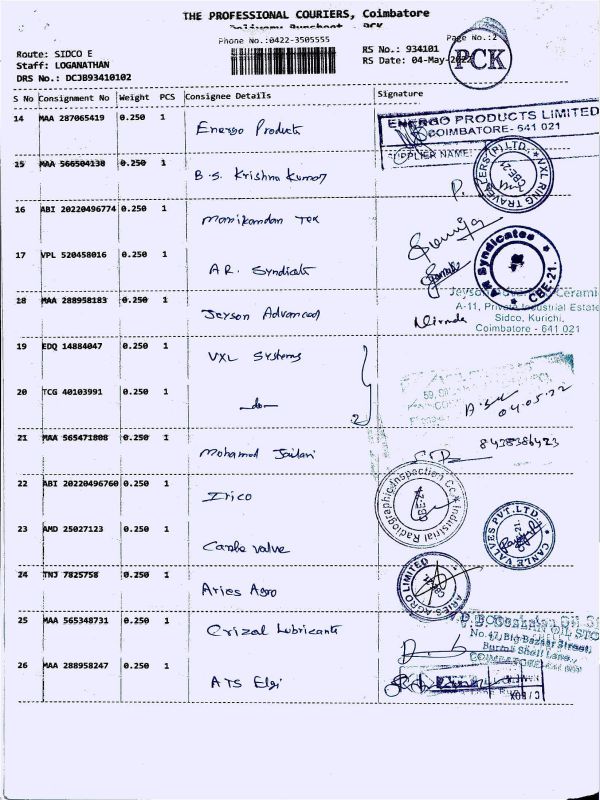 THE PROFESSIONAL COURIERS, Coimbatore
Phone No.:0422-3505555
Page No.:2
Route: SIDCO E
RS No.: 934101
Staff: LOGANATHAN
RS Date: 04-May-2022
PCK
DRS No.: DCJB93410102
S No Consignment No Weight PCS Consignee Details Signature
14 MAA 287065419 0.250 1 Energo Products
ENERGO PRODUCTS LIMITED
COIMBATORE- 641 021
SUPPLIER NAME:
15 MAA 566504138 0.250 1 B.S. Krishna Kumar
VXL RING TRAVELLERS(P)LTD.
CBE-21
16 ABI 20220496774 0.250 1 Manikandan Tex
17 VPL 520458016 0.250 1 A.R. Syndicate
AR Syndicates
CBE-21.
18 MAA 288958183 0.250 1 Jeyson Advanced
A-11, Private Industrial Estate
Sidco, Kurichi,
Coimbatore - 641 021
19 EDQ 14884047 0.250 1 VXL Systems
20 TCG 40103991 0.250 1 -do-
2
04.05.22
21 MAA 565471808 0.250 1 Mohamed Jailani
8438386423
22 ABI 20220496760 0.250 1 Irico
Industrial Radiographic Inspection Co.
CBE-21
23 AMD 25027123 0.250 1 Canle valve
CANLE VALVES PVT.LTD.
24 TNJ 7825758 0.250 1 Aries Agro
ARIES AGRO LIMITED
25 MAA 565348731 0.250 1 Crizal Lubricants
No.47, Big Bazaar Street,
26 MAA 288958247 0.250 1 ATS Elgi